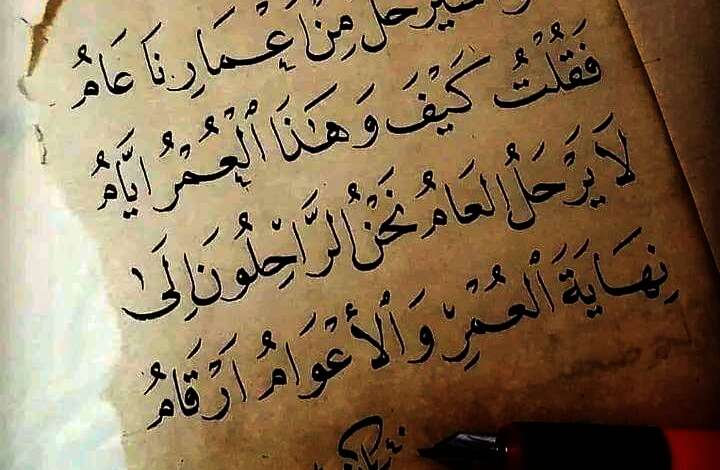 سَيَرْحَلُ مِنْ إِعْمَارِنَا عَامُ
فَقُلْتُ كَيْفَ وَهَٰذَا ٱلْعُمْرُ ايَّامُ
لَا يَرْحَلُ العَامُ نَحْنُ الرَّاحِلُونَ إِلَىٰ
نِهَايَةَ ٱلْعُمْرِ وَٱلْأَعْوَامُ اَرْقَامُ